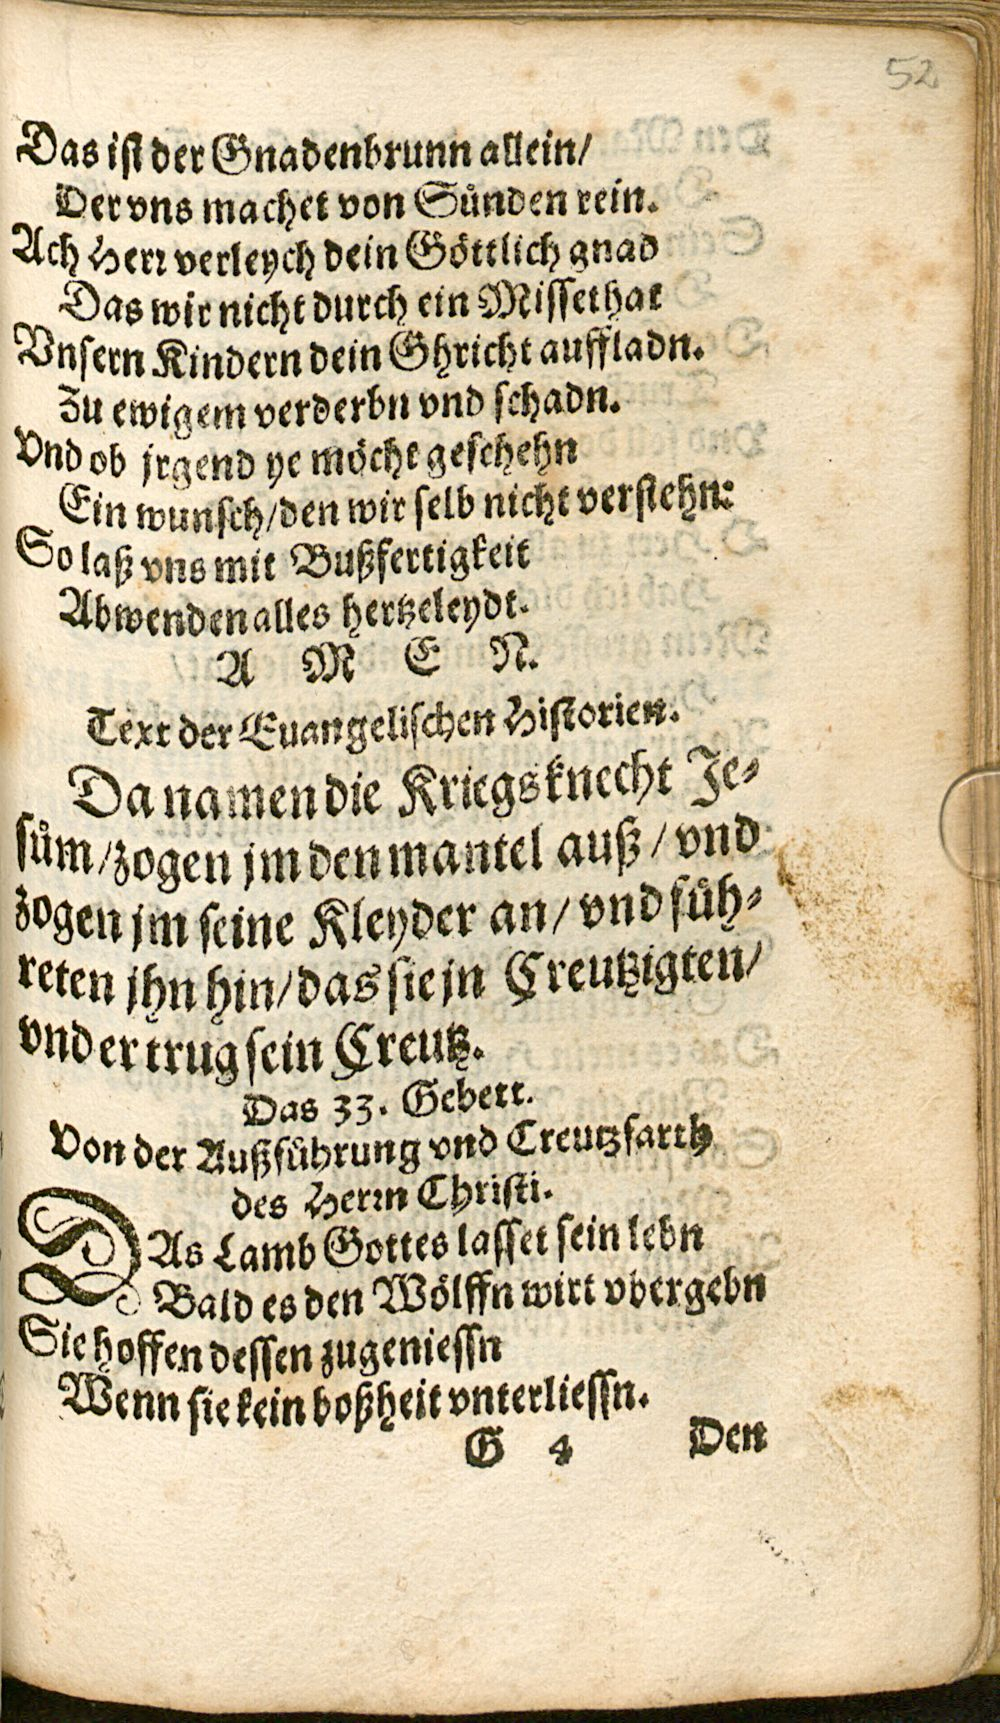 52
Das ist der Gnadenbrunn allein/
Der vns machet von Sünden rein.
Ach Herr verleych dein Göttlich gnad
Das wir nicht durch ein Missethat
Vnsern Kindern dein Ghricht auffladn.
Zu ewigem verderbn vnd schadn.
Vnd ob jrgend ye möcht geschehn
Ein wunsch/den wir selb nicht verstehn:
So laß vns mit Bußfertigkeit
Abwenden alles hertzeleydt.
A M E N.
Text der Euangelischen Historien.
Da namen die Kriegsknecht Je-
süm/zogen jm den mantel auß/vnd
zogen jm seine Kleyder an/vnd füh-
reten jhn hin/das sie jn Creutzigten/
vnd er trug sein Creutz.
Das 33. Gebett.
Von der Außführung vnd Creutzfarth
des Herrn Christi.
DAs Lamb Gottes lasset sein lebn
Bald es den Wölffn wirt vbergebn
Sie hoffen dessen zugeniessn
Wenn sie kein boßheit vnterliessn.
G 4 Den